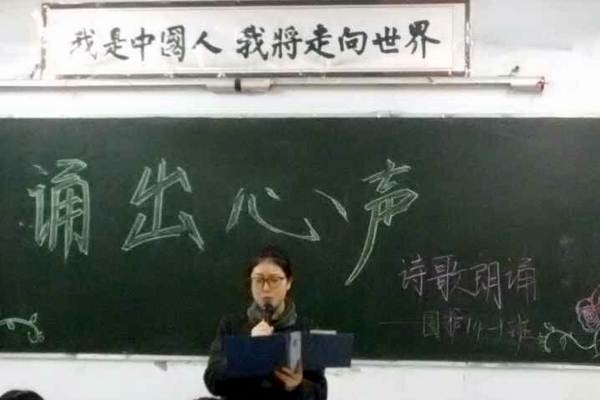 我是中國人 我將走向世界
诵出心声
诗歌朗诵
——国护14-1班